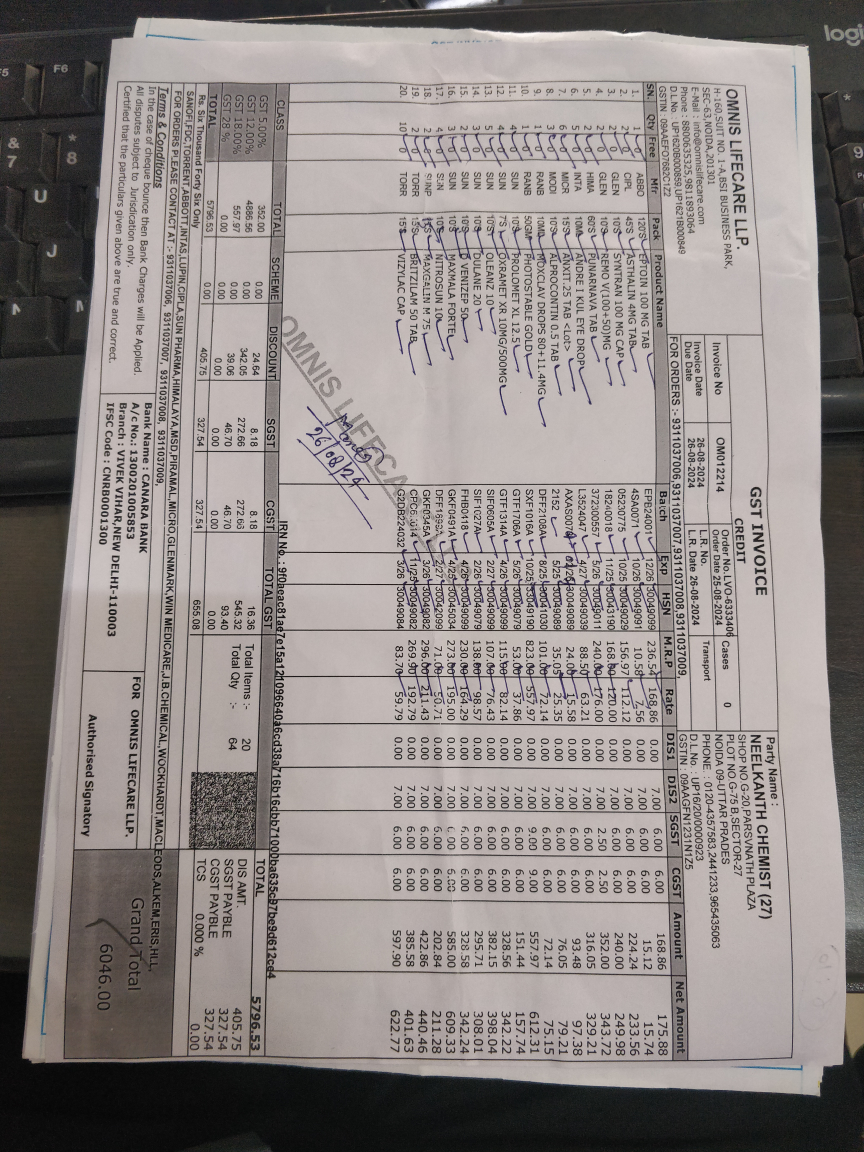 OMNIS LIFECARE LLP.
H-160,SUIT NO. 1-A,BSI BUSINESS PARK,
SEC-63,NOIDA,201301
E-Mail : info@omnislifecare.com
Phone : 8800635325,9811893064
D.L.No. : UP1620B000859,UP1621B000849
GSTIN : 09AAEFO7682C1Z2
GST INVOICE
CREDIT
Invoice No OM012214 Order No: LVO-6333406 Cases 0
Order Date 25-08-2024
Invoice Date 26-08-2024 L.R. No. Transport
Due Date 26-08-2024 L.R. Date 26-08-2024
FOR ORDERS :- 9311037006,9311037007,9311037008,9311037009,
Party Name :
NEELKANTH CHEMIST (27)
SHOP NO.G-20,PARSVNATH PLAZA
PLOT NO.G-75 B,SECTOR-27
NOIDA 09-UTTAR PRADES
PHONE : 0120-4357583,2441233,965435063
D.L.No. : UP16/20/0000923
GSTIN : 09AAGFN1231N1Z5
SN. Qty Free Mfr Pack Product Name Batch Exp HSN M.R.P Rate DIS1 DIS2 SGST CGST Amount Net Amount
1. 1 0 ABBO 120'S EPTOIN 100 MG TAB EPB24001 12/26 30049099 236.54 168.86 0.00 7.00 6.00 6.00 168.86 175.88
2. 2 0 CIPL 45'S ASTHALIN 4MG TAB 4SA0071 10/26 30049091 10.58 7.56 0.00 7.00 6.00 6.00 15.12 15.74
3. 2 0 GLEN 10'S SYNTRAN 100 MG CAP 05230775 10/25 30049029 156.97 112.12 0.00 7.00 6.00 6.00 224.24 233.56
4. 2 0 GLEN 10'S REMO V(100+50)MG 18240018 11/25 30043190 168.00 120.00 0.00 7.00 6.00 6.00 240.00 249.98
5. 2 0 HIMA 60'S PUNARNAVA TAB 372300557 5/26 30049011 240.00 176.00 0.00 7.00 2.50 2.50 352.00 343.72
INTA 10ML ANDRE I KUL EYE DROP L3524047 4/27 30049039 88.50 63.21 0.00 7.00 6.00 6.00 316.05 329.21
7. 6 0 MICR 15'S ANXIT .25 TAB <Lot> 30049089 24.00 15.58 0.00 7.00 6.00 6.00 93.48 97.38
8. 3 0 MODI 10'S ALPROCONTIN 0.5 TAB 2152 5/25 30049089 35.05 25.35 0.00 7.00 6.00 6.00 76.05 79.21
9. 1 0 RANB 10ML MOXCLAV DROPS 80+11.4MG DFF2108A 8/25 30041030 101.00 72.14 0.00 7.00 6.00 6.00 72.14 75.15
10. 1 0 RANB 50GM PHOTOSTABLE GOLD SXF1016A 10/25 33049190 823.00 557.97 0.00 7.00 9.00 9.00 557.97 612.31
11. 4 0 SUN 10'S PROLOMET XL 12.5 GTF1706A 5/26 30049079 53.00 37.86 0.00 7.00 6.00 6.00 151.44 157.74
12. 4 0 SUN 7'S OXRAMET XR 10MG/500MG GTF1314A 4/26 30049099 115.00 82.14 0.00 7.00 6.00 6.00 328.56 342.22
13. 5 0 SUN 10'S OLEANZ 10 SIF0605A 2/27 30049099 107.00 76.43 0.00 7.00 6.00 6.00 382.15 398.04
14. 3 0 SUN 10'S DULANE 20 SIF1027A 2/26 30049079 138.00 98.57 0.00 7.00 6.00 6.00 295.71 308.01
15. 2 0 SUN 10'S D VENIZEP 50 FHB0418 4/26 30049099 230.00 164.29 0.00 7.00 6.00 6.00 328.58 342.24
16. 3 0 SUN 10'S MAXMALA FORTE GKF0491A 4/25 30045034 273.00 195.00 0.00 7.00 6.00 6.00 585.00 609.33
17. 4 0 SUN 10'S NITROSUN 10 2/27 30049099 71.00 50.71 0.00 7.00 6.00 6.00 202.84 211.28
18. 2 0 SUNP MAXGALIN M 75 GKF0345A 3/26 30049082 296.00 211.43 0.00 7.00 6.00 6.00 422.86 440.46
19. 2 0 TORR 15'S BRITZILAM 50 TAB 11/25 30049082 269.90 192.79 0.00 7.00 6.00 6.00 385.58 401.63
20. 10 0 TORR 15'S VIZYLAC CAP G2DB224032 3/26 30049084 83.70 59.79 0.00 7.00 6.00 6.00 597.90 622.77
OMNIS LIFECA
26/08/24
CLASS TOTAL SCHEME DISCOUNT SGST CGST TOTAL GST
GST 5.00% 352.00 0.00 24.64 8.18 8.18 16.36
GST 12.00% 4886.56 0.00 342.05 272.66 272.66 545.32
GST 18.00% 557.97 0.00 39.06 46.70 46.70 93.40
GST 28 % 0.00 0.00 0.00 0.00 0.00 0.00
TOTAL 5796.53 0.00 405.75 327.54 327.54 655.08
Total Items :- 20
Total Qty :- 64
TOTAL 5796.53
DIS AMT. 405.75
SGST PAYBLE 327.54
CGST PAYBLE 327.54
TCS 0.000 % 0.00
Rs. Six Thousand Forty Six Only
SANOFI,FDC,TORRENT,ABBOTT,INTAS,LUPIN,CIPLA,SUN PHARMA,HIMALAYA,MSD,PIRAMAL,MICRO,GLENMARK,WIN MEDICARE,J.B.CHEMICAL,WOCKHARDT,MACLEODS,ALKEM,ERIS,HLL,
FOR ORDERS PLEASE CONTACT AT :- 9311037006, 9311037007, 9311037008, 9311037009,
Terms & Conditions
In the case of cheque bounce then Bank Charges will be Applied.
All disputes subject to Jurisdication only.
Certified that the particulars given above are true and correct.
Bank Name : CANARA BANK
A/c No.: 1300201005853
Branch : VIVEK VIHAR,NEW DELHI-110003
IFSC Code : CNRB0001300
FOR OMNIS LIFECARE LLP.
Authorised Signatory
Grand Total
6046.00
F5
F6
&
7
*
8
9
U
J
logi